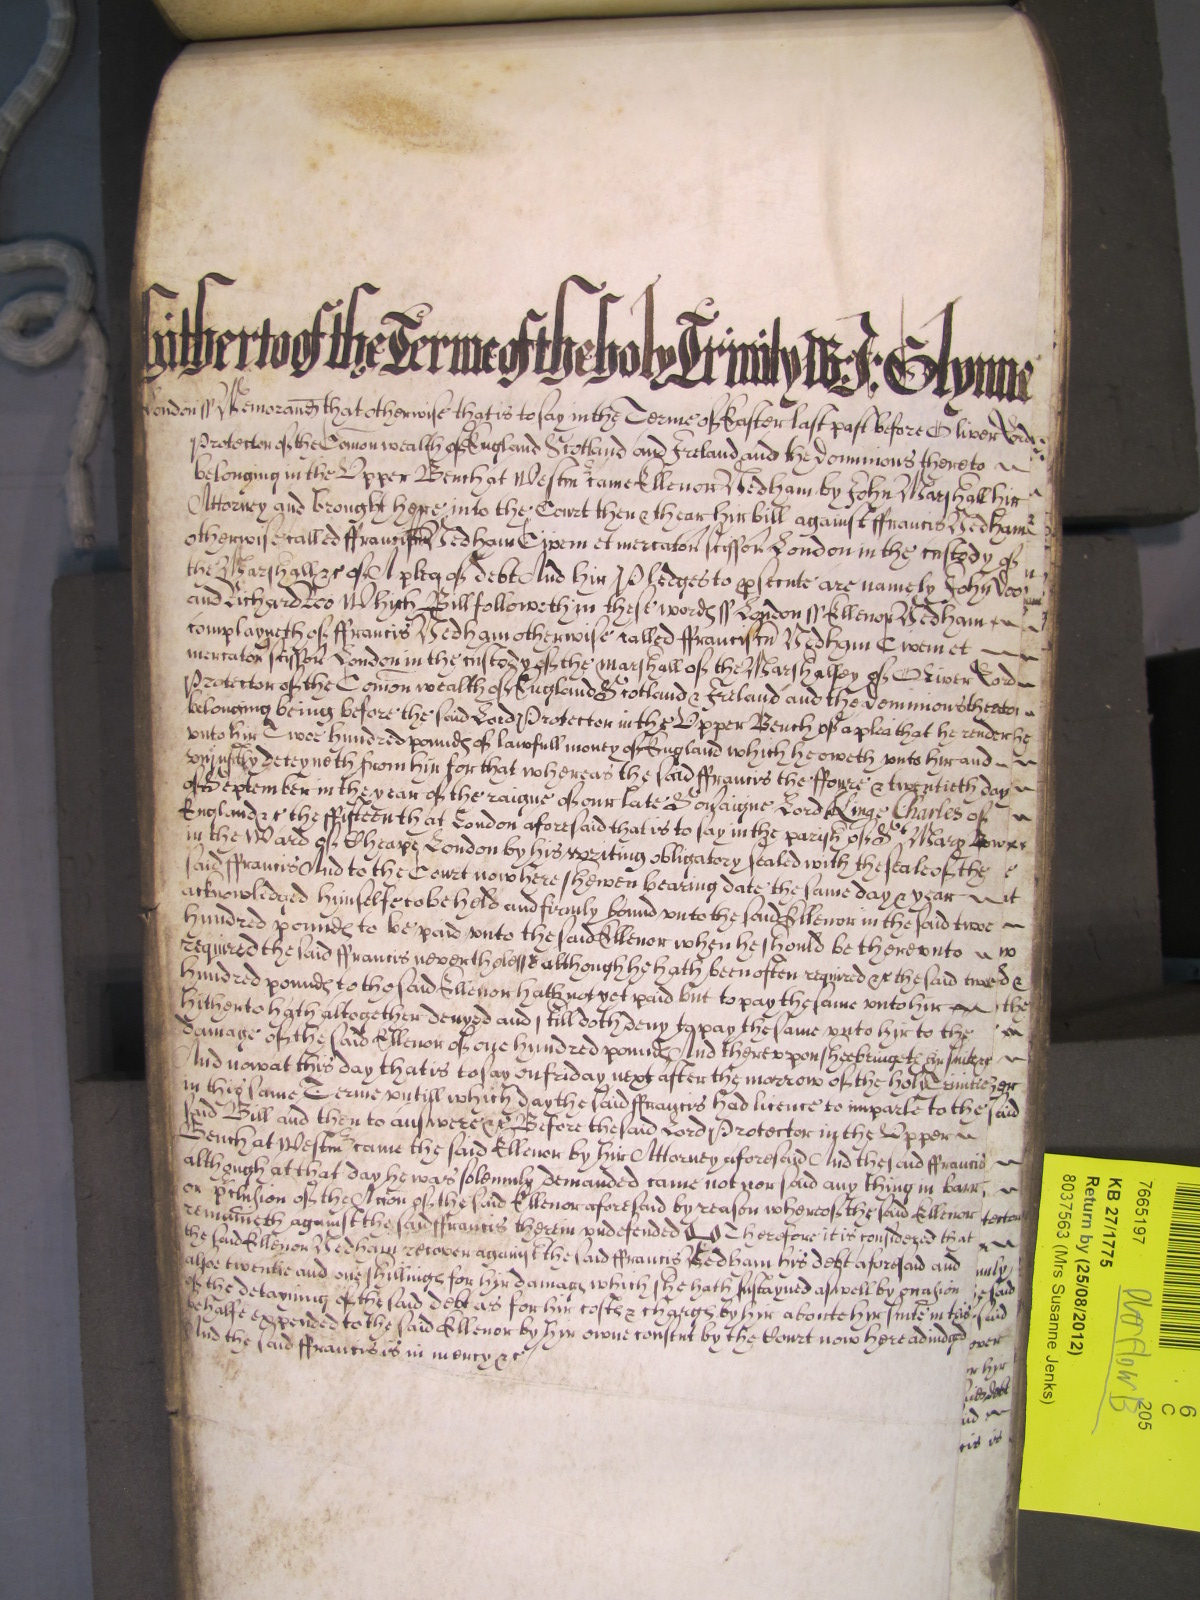 hitherto of the Terme of the holy Trinity W. J: Glynne
London ss Memorand that otherwise that is to say in the Terme of Easter last past before Oliver Lord
Protector of the Comon wealth of England Scotland and Ireland and the dominions thereto
belonging in the Upper Bench at Westm came Ellenor Nedham by John Marshall hir
Attorney and brought here into the Court then & thear hir bill against ffrancis Nedham
otherwise called ffranciscu Nedham Civem et mercator scissor London in the custody of
the Marshall &c of A plea of debt And hir Pledges to psecute are namely John Doo
and Richard Roo Which Bill followeth in these words ss London ss Ellenor Nedham
complayneth of ffrancis Nedham otherwise called ffranciscu Nedham Civem et
mercator scissor London in the custody of the marshall of the Marshalsey of Oliver Lord
Protector of the Comon wealth of England Scotland & Ireland and the dominions thereto
belonging being before the said Lord Protector in the Upper Bench of a plea that he render
unto hir Twoe hundred pounds of lawfull money of England which he oweth unto hir and
uniustly deteyneth from hir for that whereas the said ffrancis the ffoure & twentieth day
of September in the year of the raigne of our late Soveraigne Lord Kinge Charles of
England &c the ffifteenth at London aforesaid that is to say in the parish of St Mary Bowe
in the Ward of Cheape London by his writing obligatory sealed with the seale of the
said ffrancis And to the Court now here shewen bearing date the same day & year
acknowledged himselfe to be held and firmly bound unto the said Ellenor in the said twoe
hundred pounds to be paid unto the said Ellenor when he should be thereunto
required the said ffrancis neverthelesse although he hath been often required &c the said twoe
hundred pounds to the said Ellenor hath not yet paid but to pay the same unto hir
hitherto hath altogether denyed and still doth deny to pay the same unto hir to the
damage of the said Ellenor of one hundred pounds And thereupon shee bringeth hir suite &c
And now at this day that is to say on friday next after the morrow of the holy Trinitie
in this same Terme untill which day the said ffrancis had licence to imparle to the
said Bill and then to answere &c Before the said Lord Protector in the Upper
Bench at Westm came the said Ellenor by hir Attorney aforesaid And the said ffrancis
although at that day he was solemnly demanded came not nor said any thing in barr
or pclusion of the Action of the said Ellenor aforesaid by reason whereof the said Ellenor
remaineth against the said ffrancis therein undefended Therefore it is considered that
the said Ellenor Nedham recover against the said ffrancis Nedham his debt aforesaid and
alsoe twentie and one shillings for hir damages which she hath sustayned aswell by occasion
of the detayning of the said debt as for hir costs & charges by hir aboute hir suite in this
behalfe expended to the said Ellenor by hir owne consent by the Court now here adiudged
And the said ffrancis is in mercy &c
7665197
KB 27/1775
Return by (25/08/2012)
8037563 (Mrs Susanne Jenks)
205
6
C